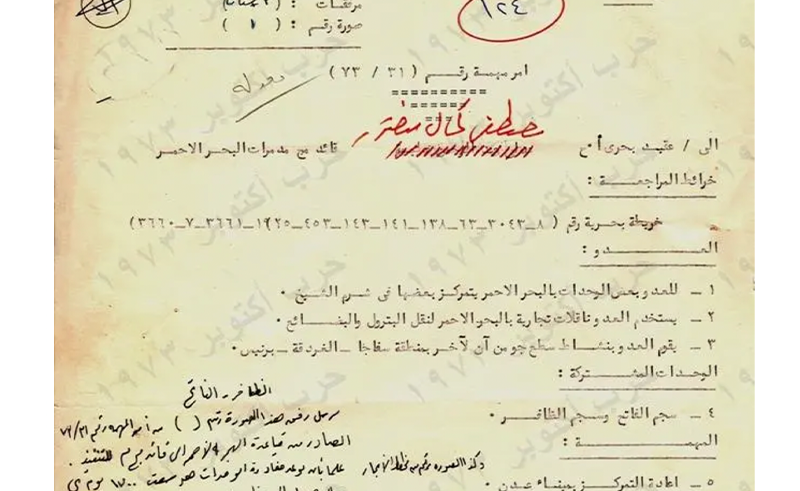 مرفقات : (
صورة رقم : ( ١ )
١٢٤
امر مهمة رقم ( ٣١ / ٧٣ )
مصطفى كمال منصور
الى / عقيد بحرى أ٠ح قائد مج مدمرات البحر الاحمر
خرائط المراجعة :
خريطة بحرية رقم ( ٨_٣٠٤٣_٦٣_١٣٨_١٤١_١٤٣_٤٥٣_ ١٩٢٥_٣٦٦١_٧_٣٦٦٠)
العدو :
١ _ للعدو بعض الوحدات بالبحر الاحمر يتمركز بعضها فى شرم الشيخ ٠
٢ _ يستخدم العدو ناقلات تجارية بالبحر الاحمر لنقل البترول والبضائع ٠
٣ _ يقوم العدو بنشاط سطح جو من آن لآخر بمنطقة سفاجا _ الغردقة _ برنيس ٠
الوحدات المشتركة :
٤ _ سجم الفاتح وسجم الظافر ٠
المهمة :
٥ _ اعادة التمركز بميناء عدن ٠
الظافر / الفاتح
مرسل رفق هذا الصورة رقم ( ) من أمر المهمة رقم ٧٣/٣١
الصادر من قيادة البحر الأحمر الى قائد للتنفيذ .
علما بأن موعد مغادرة الوحدات هو سعت ١٧٠٠ يوم
حرب أكتوبر ١٩٧٣